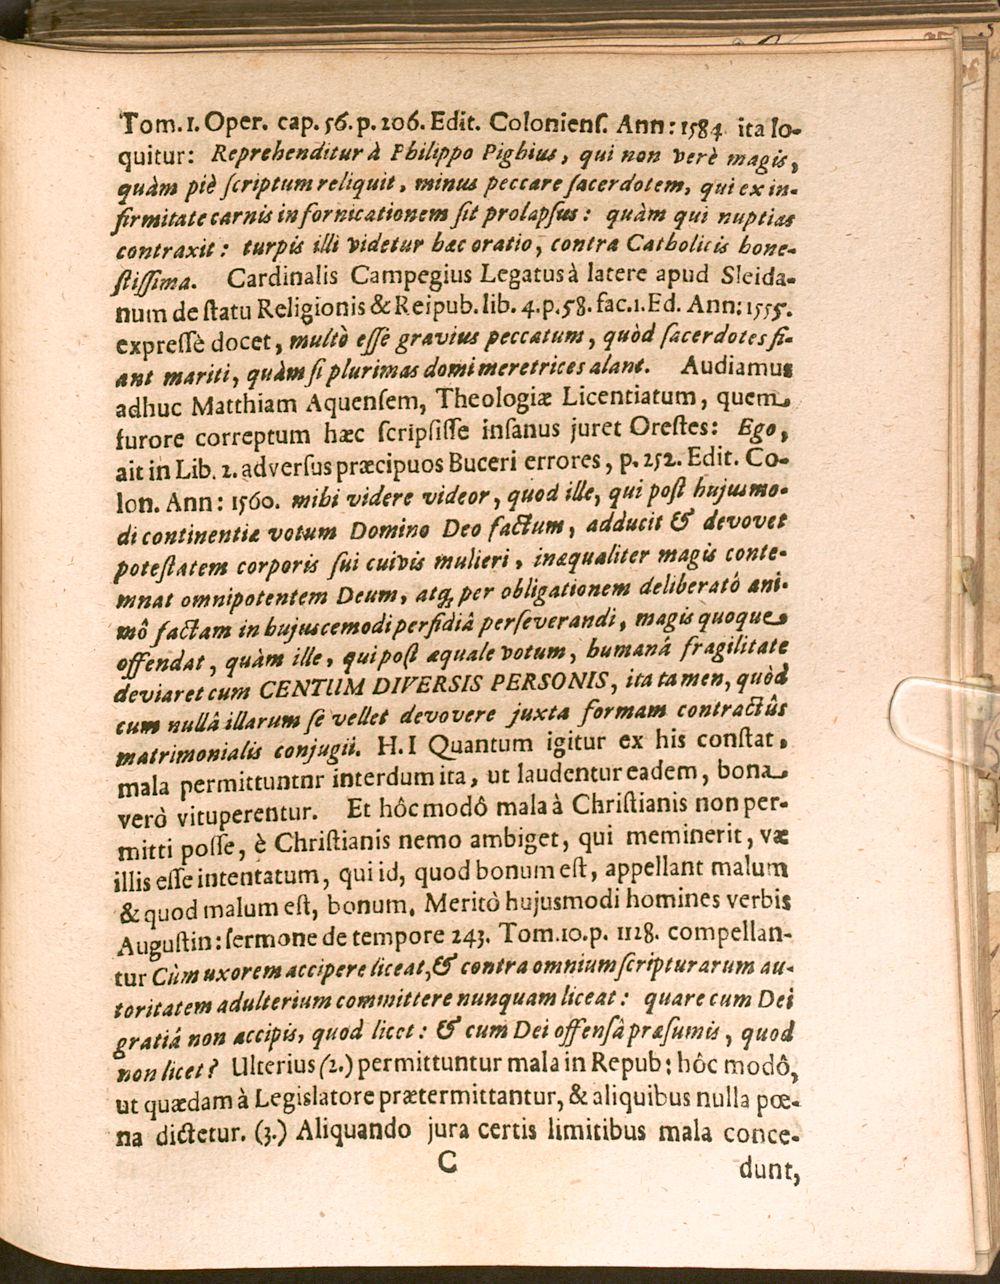 Tom. 1. Oper. cap. 56. p. 206. Edit. Colonienſ. Ann: 1584 ita lo-
quitur: Reprehenditur à Philippo Pighius, qui non verè magis,
quàm piè ſcriptum reliquit, minus peccare ſacerdotem, qui ex in-
firmitate carnis in fornicationem ſit prolapſus: quàm qui nuptias
contraxit: turpis illi videtur hæc oratio, contra Catholicis hone-
ſtiſſima. Cardinalis Campegius Legatus à latere apud Sleida-
num de ſtatu Religionis & Reipub. lib. 4. p. 58. fac. 1. Ed. Ann: 1555.
expreſſè docet, multò eſſe gravius peccatum, quòd ſacerdotes fi-
ant mariti, quàm ſi plurimas domi meretrices alant. Audiamus
adhuc Matthiam Aquenſem, Theologiæ Licentiatum, quem
furore correptum hæc ſcripſiſſe inſanus juret Oreſtes: Ego,
ait in Lib. 2. adverſus præcipuos Buceri errores, p. 252. Edit. Co-
lon. Ann: 1560. mihi videre videor, quod ille, qui poſt hujusmo-
di continentiæ votum Domino Deo factum, adducit & devovet
poteſtatem corporis ſui cuivis mulieri, inæqualiter magis conte-
mnat omnipotentem Deum, atq; per obligationem deliberatô ani-
mô factam in hujuscemodi perfidiâ perſeverandi, magis quoque
offendat, quàm ille, qui poſt æquale votum, humanâ fragilitate
deviaret cum CENTUM DIVERSIS PERSONIS, ita tamen, quòd
cum nullâ illarum ſe vellet devovere juxta formam contractûs
matrimonialis conjugii. H. I Quantum igitur ex his conſtat,
mala permittuntnr interdum ita, ut laudentur eadem, bona
verò vituperentur. Et hôc modô mala à Chriſtianis non per-
mitti poſſe, è Chriſtianis nemo ambiget, qui meminerit, væ
illis eſſe intentatum, qui id, quod bonum eſt, appellant malum
& quod malum eſt, bonum. Meritò hujusmodi homines verbis
Auguſtin: ſermone de tempore 243. Tom. 10. p. 1128. compellan-
tur Cùm uxorem accipere liceat, & contra omnium ſcripturarum au-
toritatem adulterium committere nunquam liceat: quare cum Dei
gratiâ non accipis, quod licet: & cum Dei offensâ præſumis, quod
non licet? Ulterius (2.) permittuntur mala in Repub: hôc modô,
ut quædam à Legislatore prætermittantur, & aliquibus nulla pœ-
na dictetur. (3.) Aliquando jura certis limitibus mala conce-
C
dunt,